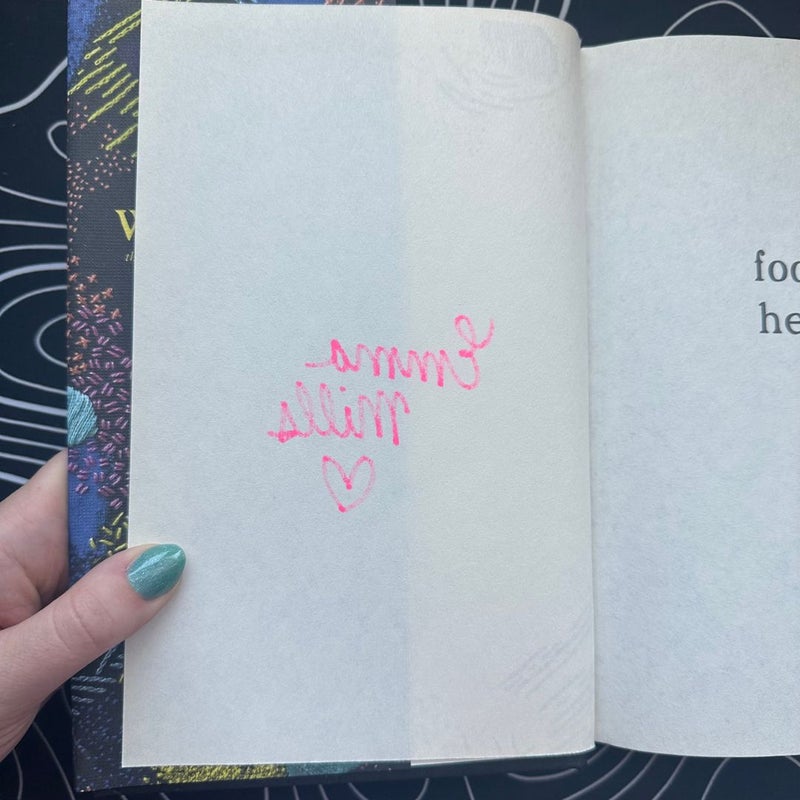 Emma
Mills
foo
he
W
th